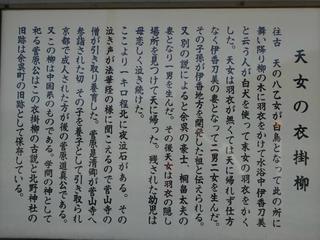 天女の衣掛柳
往古 天の八乙女が白鳥となって此の所に
舞い降り柳の木に羽衣をかけて水浴中伊香刀美
と云う人が白犬を使って末女の羽衣をかく
した。天女は羽衣が無くては天に帰れず仕方
なく伊香刀美の妻となって二男二女を生んだ。
その子孫が伊香地方を開発した祖と伝えられる。
又別の説によると余呉の豪士、桐畠太夫の
妻となり一男を生んだ。その後天女は羽衣の隠し
場所を見つけて天に帰った。残された幼児は
母恋しく泣き続けた。
ここより一キロ程北に夜泣石がある。その
泣き声が法華経の様に聞こえるので菅山寺の
僧が引き取り養育した。菅原是清卿が菅山寺へ
参詣された切、その子を養子として引き取られ
京都で成人された方が後の菅原道真公である。
又この柳は中国系のものである。学問の神として
祀る菅原公はこの衣掛柳の古説と北野神社の
旧跡は余呉町の旧跡として保存している。